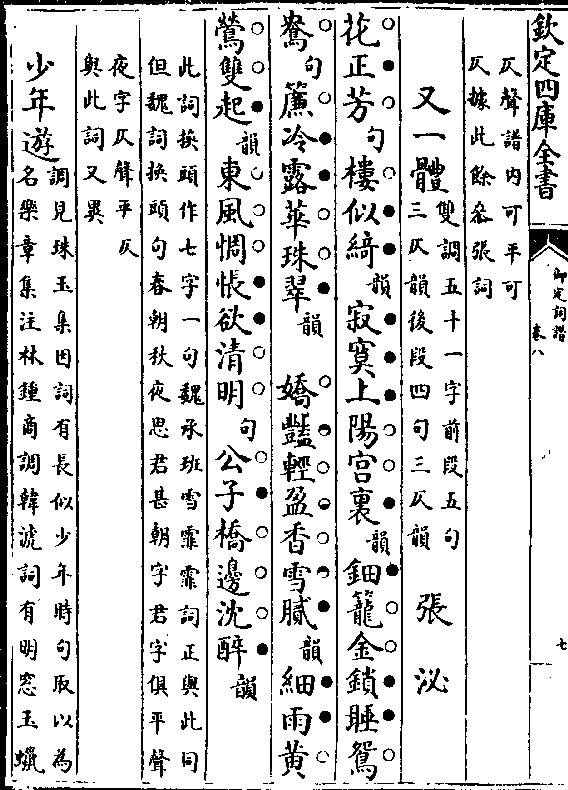 欽定四庫全書
御定詞譜
卷八
七
仄聲譜内可平可
仄據此餘參張詞
又一體雙調五十一字前段五句
三仄韻後段四句三仄韻
張泌
花正芳句樓似綺韻寂寞上陽宫裏韻鈿籠金鎖睡鴛
鴦句簾冷露華珠翠韻　嬌豔輕盈香雪膩韻細雨黄
鶯雙起韻東風惆悵欲清明句公子橋邊沈醉韻
此詞換頭作七字一句魏承班雪霏霏詞正與此同
但魏詞換頭句春朝秋夜思君甚朝字君字俱平聲
夜字仄聲平仄
與此詞又異
少年遊調見珠玉集因詞有長似少年時句取以為
名樂章集注林鍾商調韓淲詞有明窓玉蠟